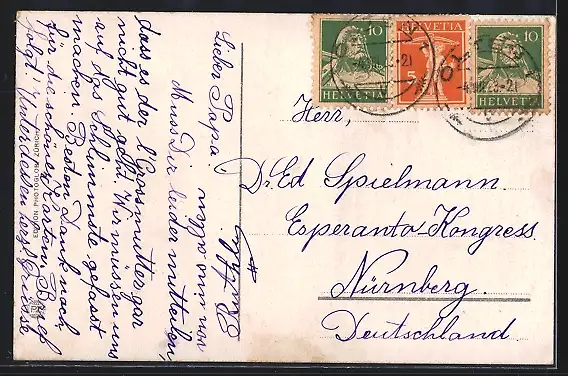 Lieber Papa.
Muss Dir leider mitteilen,
dass es der l. Grossmutter gar
nicht gut geht. Wir müssen uns
auf das Schlimmste gefasst
machen. Besten Dank nach
für die schönen Karten. Brief
folgt! Unterdessen herzl. Grüsse
von uns allen
EDITION PHOTOGLOB ZÜRICH
10
HELVETIA
HELVETIA
5
10
HELVETIA
OLTEN
OLTEN
Herr,
Dr. Ed Spielmann.
Esperanto-Kongress.
Nürnberg.
Deutschland.